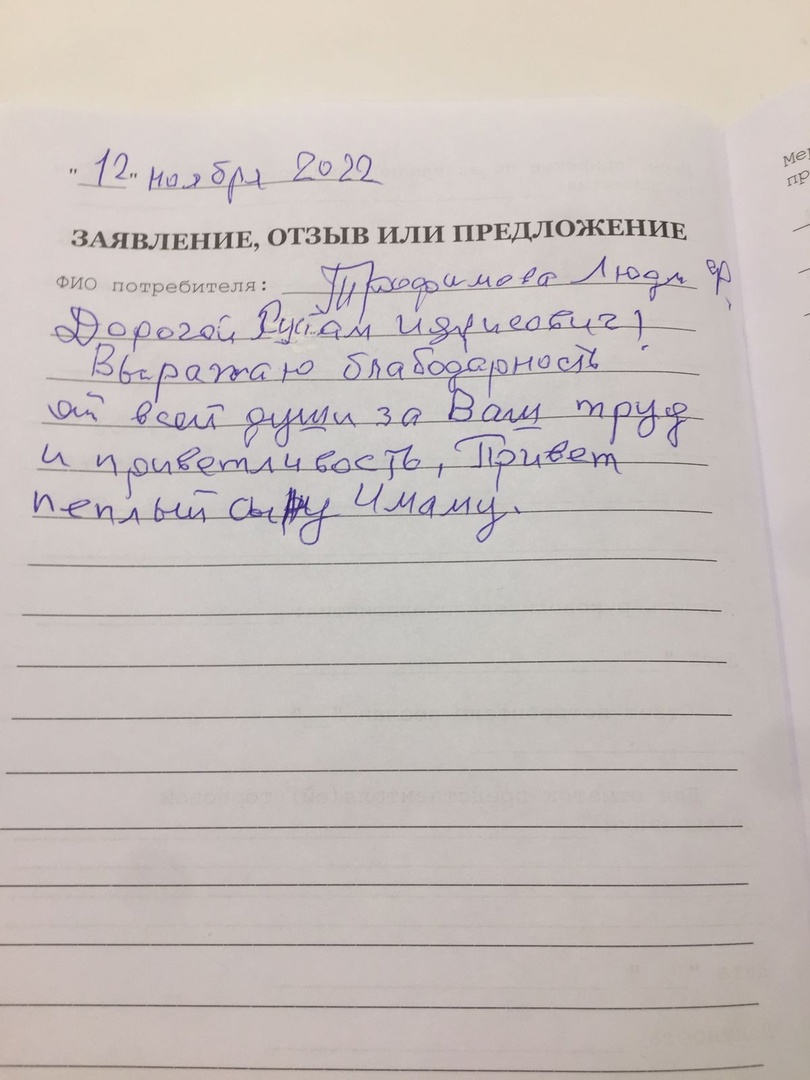 "12" ноября 2022
ЗАЯВЛЕНИЕ, ОТЗЫВ ИЛИ ПРЕДЛОЖЕНИЕ
ФИО потребителя: Трофимова Людм
Дорогой Рустам Идрисович!
Выражаю благодарность
от всей души за Ваш труд
и приветливость, Привет
теплый сыну Имаму.